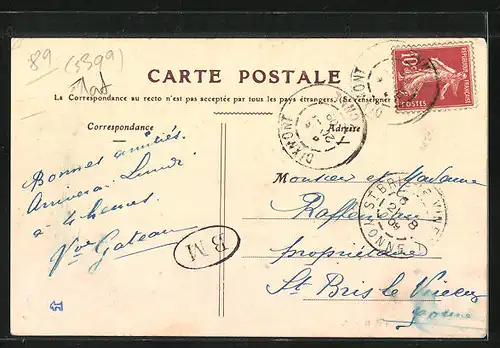 89 (5399)
CARTE POSTALE
La Correspondance au recto n'est pas acceptée par tous les pays étrangers. (Se renseigner
Correspondance
Adresse
Bonnes amitiés.
Arriverai Lundi
à 4 heures
Vve Gateau
BM
Monsieur et Madame
Raffeneau
propriétaire
St Bris le Vineux
Yonne
10c
POSTES
DIXMONT
ST BRIS-LE-VINEUX
YONNE